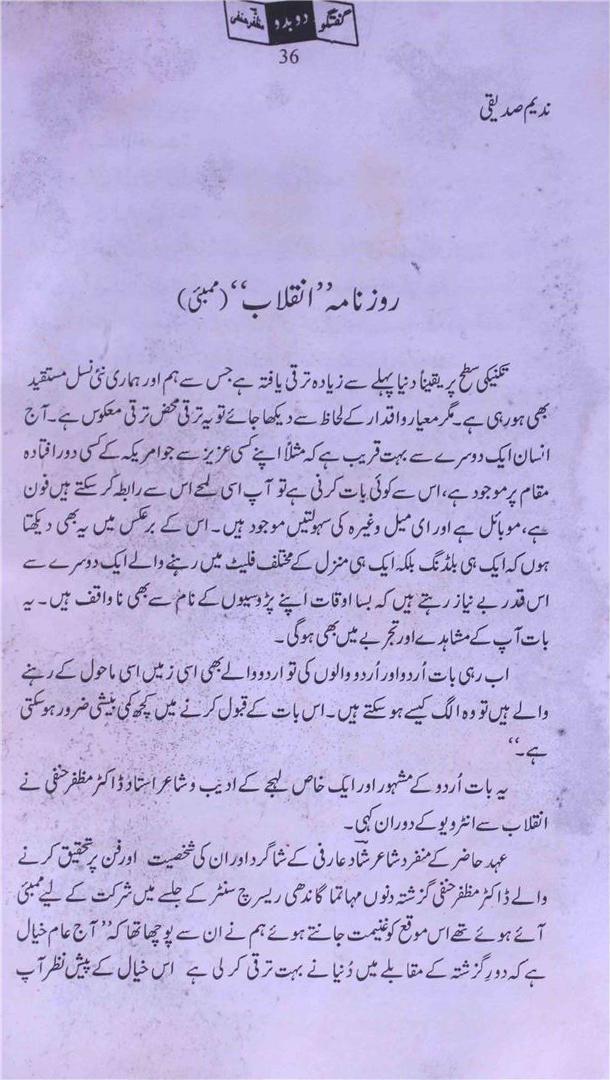 گفتگو دوبدو مظفر حنفی
36
ندیم صدیقی
روزنامہ ”انقلاب“ (ممبئی)
تکنیکی سطح پر یقیناً دنیا پہلے سے زیادہ ترقی یافتہ ہے جس سے ہم اور ہماری نئی نسل مستفید
بھی ہو رہی ہے۔ مگر معیار و اقدار کے لحاظ سے دیکھا جائے تو یہ ترقی محض ترقی معکوس ہے۔ آج
انسان ایک دوسرے سے بہت قریب ہے کہ مثلاً اپنے کسی عزیز سے جو امریکہ کے کسی دور افتادہ
مقام پر موجود ہے، اس سے کوئی بات کرنی ہے تو آپ اسی لمحے اس سے رابطہ کر سکتے ہیں فون
ہے، موبائل ہے اور ای میل وغیرہ کی سہولتیں موجود ہیں۔ اس کے برعکس میں یہ بھی دیکھتا
ہوں کہ ایک ہی بلڈنگ بلکہ ایک ہی منزل کے مختلف فلیٹ میں رہنے والے ایک دوسرے سے
اس قدر بے نیاز رہتے ہیں کہ بسا اوقات اپنے پڑوسیوں کے نام سے بھی ناواقف ہیں۔ یہ
بات آپ کے مشاہدے اور تجربے میں بھی ہوگی۔
اب رہی بات اُردو اور اُردو والوں کی تو اردو والے بھی اسی زمیں اسی ماحول کے رہنے
والے ہیں تو وہ الگ کیسے ہو سکتے ہیں۔ اس بات کے قبول کرنے میں کچھ کمی بیشی ضرور ہو سکتی
ہے۔“
یہ بات اُردو کے مشہور اور ایک خاص لہجے کے ادیب و شاعر استاد ڈاکٹر مظفر حنفی نے
انقلاب سے انٹرویو کے دوران کہی۔
عہد حاضر کے منفرد شاعر شاد عارفی کے شاگرد اور ان کی شخصیت اور فن پر تحقیق کرنے
والے ڈاکٹر مظفر حنفی گزشتہ دنوں مہاتما گاندھی ریسرچ سنٹر کے جلسے میں شرکت کے لیے ممبئی
آئے ہوئے تھے اس موقع کو غنیمت جانتے ہوئے ہم نے ان سے پوچھا تھا کہ ”آج عام خیال
ہے کہ دورِ گزشتہ کے مقابلے میں دُنیا نے بہت ترقی کر لی ہے اس خیال کے پیش نظر آپ